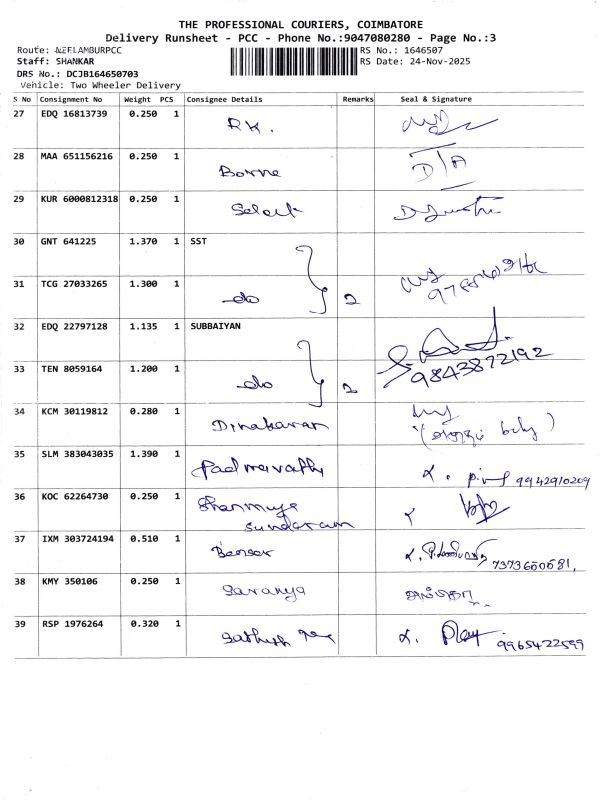 THE PROFESSIONAL COURIERS, COIMBATORE
Delivery Runsheet - PCC - Phone No.:9047080280 - Page No.:3
Route: NEELAMBURPCC RS No.: 1646507
Staff: SHANKAR RS Date: 24-Nov-2025
DRS No.: DCJB164650703
Vehicle: Two Wheeler Delivery
S No Consignment No Weight PCS Consignee Details Remarks Seal & Signature
27 EDQ 16813739 0.250 1 R.K.
28 MAA 651156216 0.250 1 Borne D/A
29 KUR 6000812318 0.250 1 Select
30 GNT 641225 1.370 1 SST
31 TCG 27033265 1.300 1 do 2
32 EDQ 22797128 1.135 1 SUBBAIYAN
33 TEN 8059164 1.200 1 do 2 9843872192
34 KCM 30119812 0.280 1 Dinakaran
35 SLM 383043035 1.390 1 Padmavathy 9942910209
36 KOC 62264730 0.250 1 Shanmuga
sundaram
37 IXM 303724194 0.510 1 7373660681
38 KMY 350106 0.250 1 Saranya
39 RSP 1976264 0.320 1 Sathish 9965422599